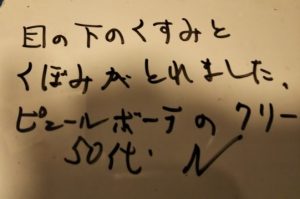 目の下のくすみと
くぼみがとれました、
ピュールボーテのクリー
50代 N